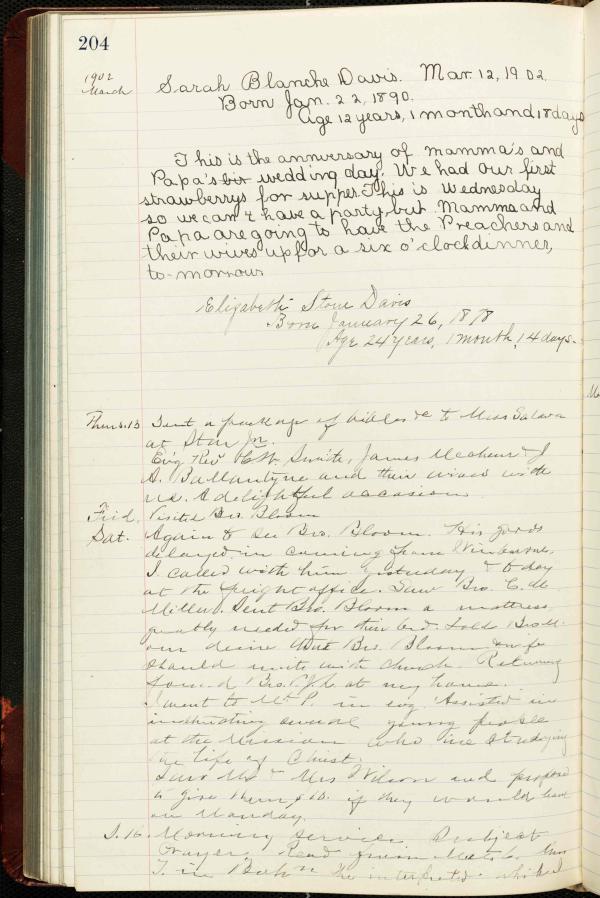 204
1902
March
Sarah Blanche Davis. Mar. 12, 1902.
Born Jan. 22, 1890.
Age 12 years, 1 month and 18 days
This is the anniversary of mamma's and
Papa's wedding day. We had our first
strawberrys for supper. This is Wednesday
so we can't have a party, but Mamma and
Papa are going to have the Preachers and
their wives up for a six o'clock dinner,
to-morrow
Elizabeth Stone Davis
Born January 26, 1878
Age 24 years, 1 month, 14 days.
Thurs. 13 Sent a package of bibles &c to Miss
at Star Jn.
Ev'g Rev Smith, James & J
A. Ballantyne and their wives with
us. A delightful occasion
Frid. Visited Bro. Bloom
Sat. Again to see Bro. Bloom. His goods
delayed in coming from
I called with him yesterday & to day
at the freight office. Saw Bro. C. M.
Miller. Sent Bro. Bloom a mattress
greatly needed for their bed. Told Bro M.
our desire that Bro. Bloom & wife
should unite with church. Returning
found Bro. at my home.
I went to Mt P. in evg. Assisted in
instructing several young people
at the Mission who are studying
the life of Christ.
Saw Mr & Mrs Wilson and
to give them if they would
on Monday.
S. 16. Morning service. Subject
Prayer. Read from
in he interpreted while I